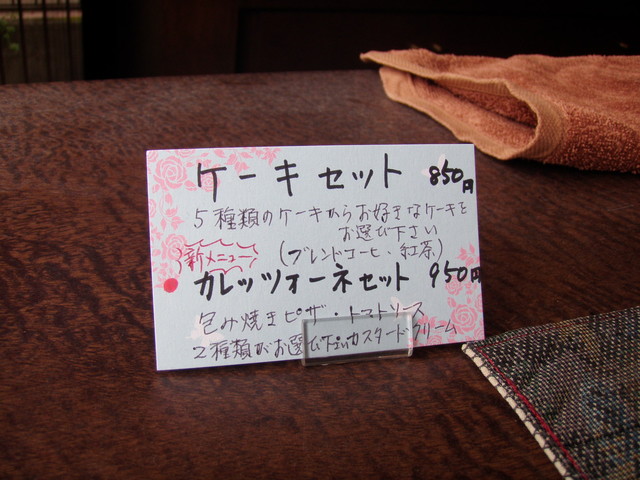 ケーキセット 850円
5種類のケーキからお好きなケーキを
お選び下さい
新メニュー (ブレンドコーヒ、紅茶)
カレッツォーネセット 950円
包み焼きピザ・トマトソース
2種類がお選び下さいカスタードクリーム